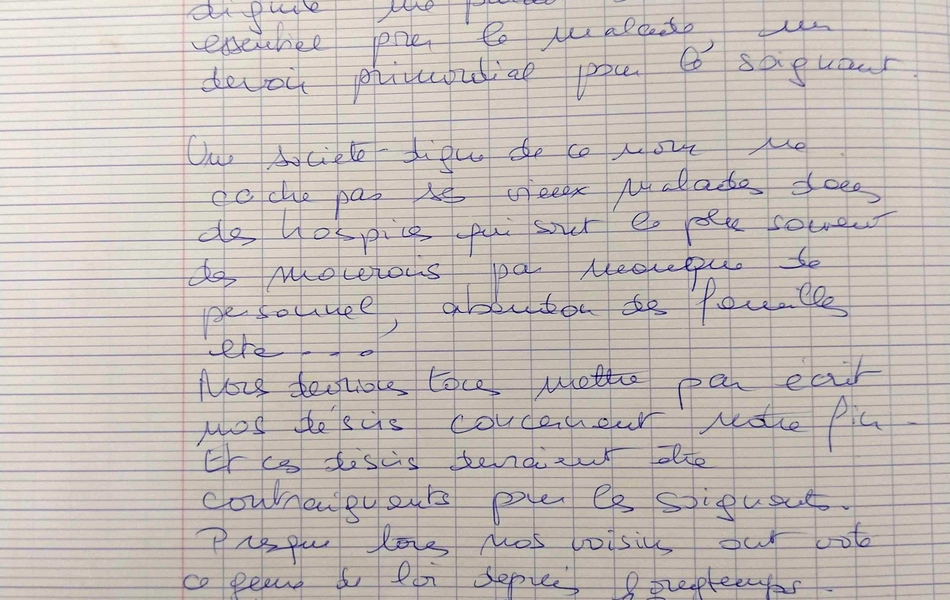 essentiel pour le malade, un
devoir primordial pour le soignant.
Une société digne de ce nom ne
cache pas ses vieux malades dans
des hospices qui sont le plus souvent
des mouroirs par manque de
personnel, abandon des familles
etc ....
Nous devrions tous mettre par écrit
nos désirs concernant notre fin.
Et ces désirs devraient être
contraignants pour les soignants.
Presque tous nos voisins ont voté
ce genre de loi depuis longtemps.